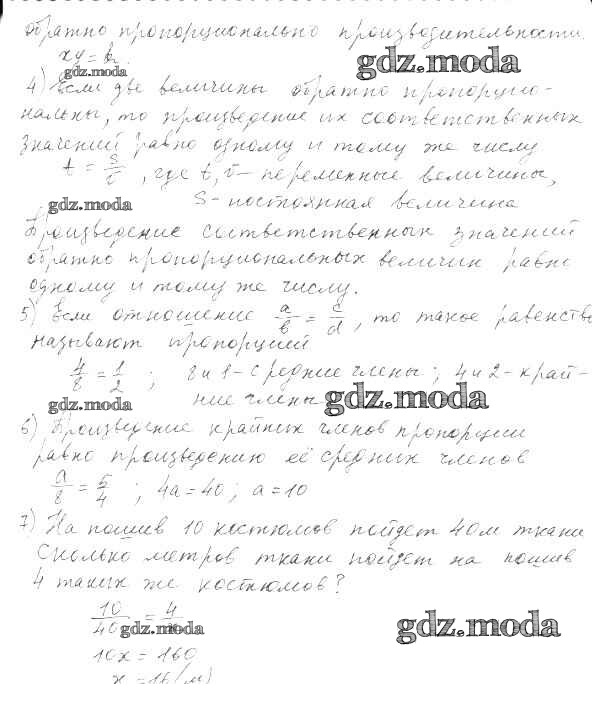 обратно пропорционально производительности.
xy = k.
gdz.moda
gdz.moda
4) Если две величины обратно пропорцио-
нальны, то произведение их соответственных
значений равно одному и тому же числу
t = s/v, где t, v - переменные величины,
gdz.moda
S - постоянная величина
Произведение соответственных значений
обратно пропорциональных величин равно
одному и тому же числу.
5) Если отношение a/b = c/d, то такое равенство
называют пропорцией
4/8 = 1/2 ; 8 и 1 - средние члены; 4 и 2 - край-
gdz.moda
ние члены
gdz.moda
6) Произведение крайных членов пропорции
равно произведению её средних членов
a/8 = 5/4 ; 4a = 40; a = 10
7) На пошив 10 костюмов пойдет 40 м ткани
Сколько метров ткани пойдет на пошив
4 таких же костюмов?
10/40 = 4/
gdz.moda
gdz.moda
10x = 160
x = 16 (м)